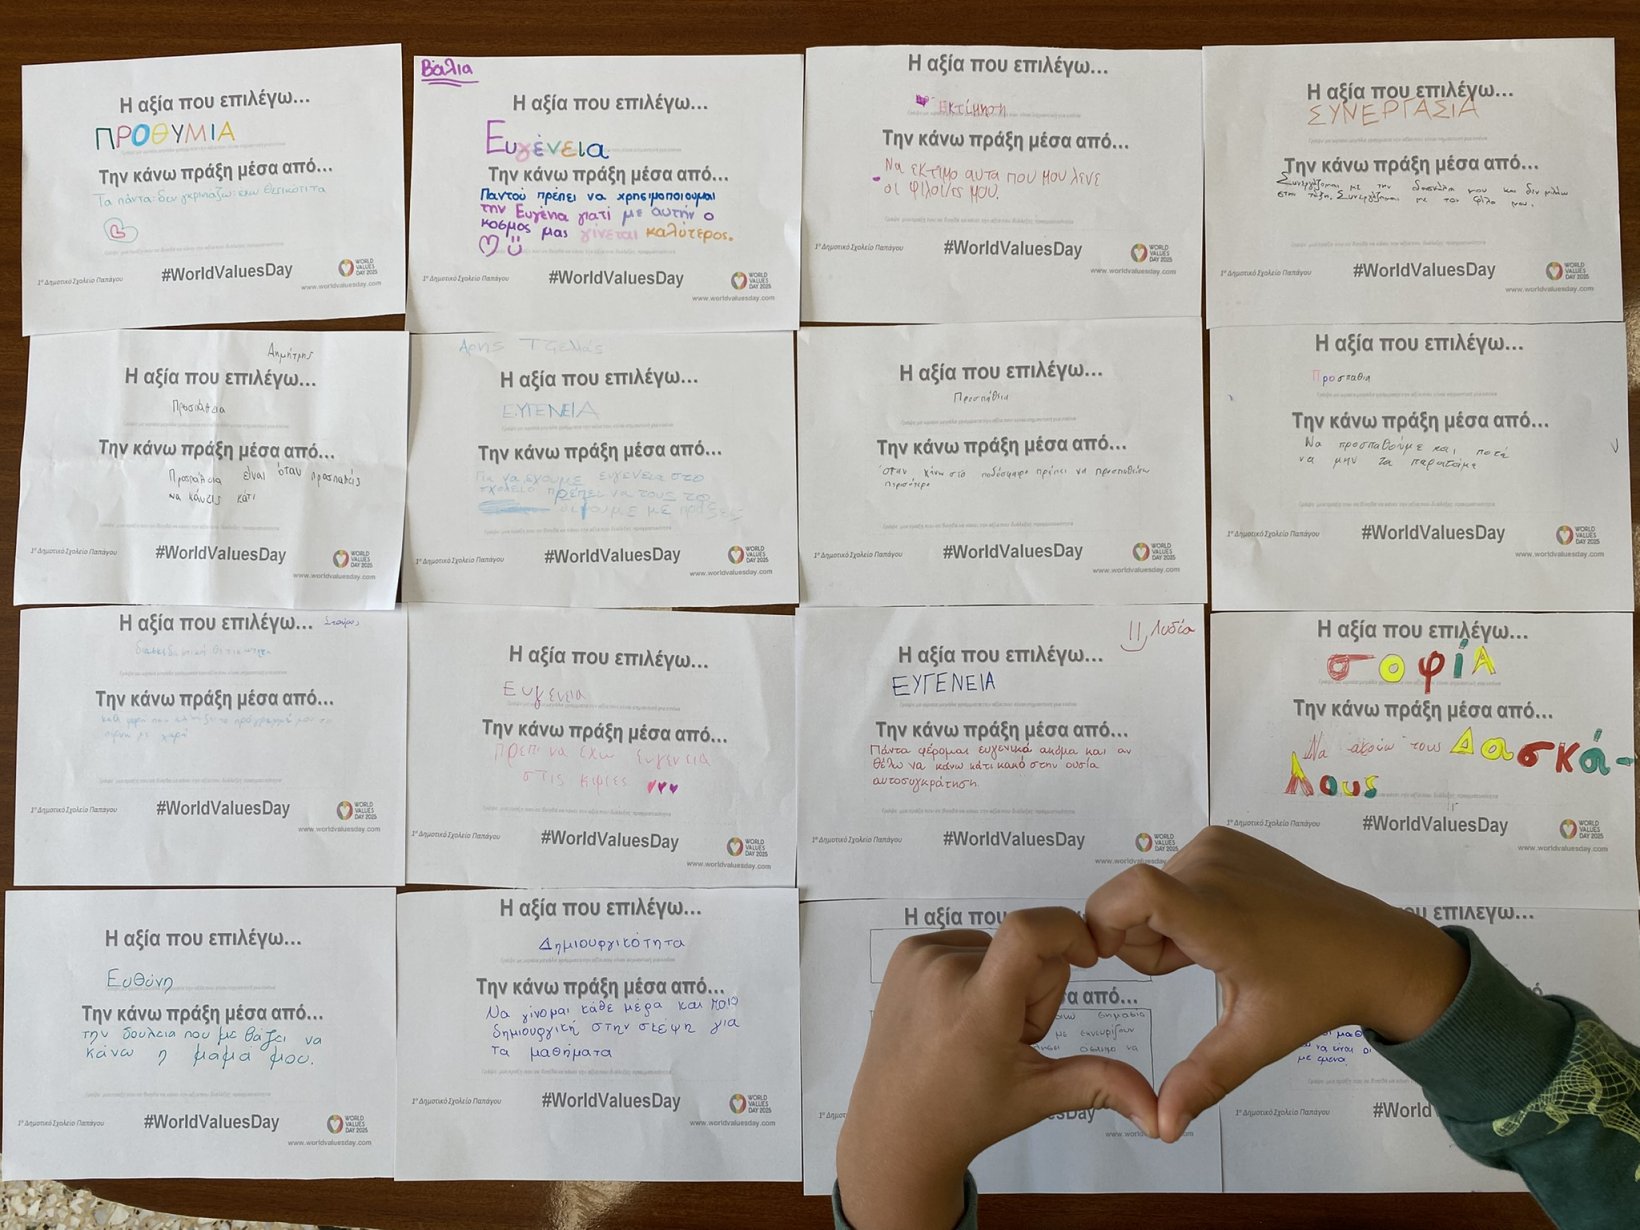 Η αξία που επιλέγω...
ΠΡΟΘΥΜΙΑ
Την κάνω πράξη μέσα από...
Τα πάντα δεν γκρινιάζω έχω θετικότιτα
1ο Δημοτικό Σχολείο Παπάγου
#WorldValuesDay
WORLD VALUES DAY 2025
www.worldvaluesday.com
Βάλια
Η αξία που επιλέγω...
Ευγένεια
Την κάνω πράξη μέσα από...
Παντού πρέπει να χρησιμοποιούμαι
την Ευγένα γιατί με αυτήν ο
κοσμος μας γίνεται καλύτερος.
1ο Δημοτικό Σχολείο Παπάγου
#WorldValuesDay
WORLD VALUES DAY 2025
www.worldvaluesday.com
Η αξία που επιλέγω...
Εκτίμηση
Την κάνω πράξη μέσα από...
Να εκτιμο αυτα που μου λενε
οι φιλοι/ες μου.
1ο Δημοτικό Σχολείο Παπάγου
#WorldValuesDay
WORLD VALUES DAY 2025
www.worldvaluesday.com
Η αξία που επιλέγω...
ΣΥΝΕΡΓΑΣΙΑ
Την κάνω πράξη μέσα από...
Συνεργάζομαι με την δασκάλα μου και δεν μιλάω
στην τάξη. Συνεργάζομαι με τον φίλο μου.
1ο Δημοτικό Σχολείο Παπάγου
#WorldValuesDay
WORLD VALUES DAY 2025
www.worldvaluesday.com
Δημήτρης
Η αξία που επιλέγω...
Προσπάθεια
Την κάνω πράξη μέσα από...
Προσπάθεια είναι όταν προσπαθείς
να κάνεις κάτι
1ο Δημοτικό Σχολείο Παπάγου
#WorldValuesDay
WORLD VALUES DAY 2025
www.worldvaluesday.com
Άρης
Η αξία που επιλέγω...
ΕΥΓΕΝΕΙΑ
Την κάνω πράξη μέσα από...
Για να έχουμε ευγενεια στο
σχολείο πρέπει να τους το
δίνουμε με πράξεις
1ο Δημοτικό Σχολείο Παπάγου
#WorldValuesDay
WORLD VALUES DAY 2025
www.worldvaluesday.com
Η αξία που επιλέγω...
Προσπάθεια
Την κάνω πράξη μέσα από...
όταν χάνω στό ποδόσφαιρο πρέπει να προσπαθήσω
περισότερο
1ο Δημοτικό Σχολείο Παπάγου
#WorldValuesDay
WORLD VALUES DAY 2025
www.worldvaluesday.com
Η αξία που επιλέγω...
Την κάνω πράξη μέσα από...
Να προσπαθούμε και ποτέ
να μην τα παρατάμε
1ο Δημοτικό Σχολείο Παπάγου
#WorldValuesDay
WORLD VALUES DAY 2025
www.worldvaluesday.com
Η αξία που επιλέγω...
Σταύρος
Την κάνω πράξη μέσα από...
1ο Δημοτικό Σχολείο Παπάγου
#WorldValuesDay
WORLD VALUES DAY 2025
www.worldvaluesday.com
Η αξία που επιλέγω...
Ευγενεια
Την κάνω πράξη μέσα από...
πρεπι να εχω Ευγενεια
στις κιριες
1ο Δημοτικό Σχολείο Παπάγου
#WorldValuesDay
WORLD VALUES DAY 2025
www.worldvaluesday.com
Λυδία
Η αξία που επιλέγω...
ΕΥΓΕΝΕΙΑ
Την κάνω πράξη μέσα από...
Πάντα φέρομαι ευγενικά ακόμα και αν
θέλω να κάνω κάτι κακό στην ουσία
αυτοσυγκράτηση.
1ο Δημοτικό Σχολείο Παπάγου
#WorldValuesDay
WORLD VALUES DAY 2025
www.worldvaluesday
Η αξία που επιλέγω...
σοφίΑ
Την κάνω πράξη μέσα από...
Να ακούω τους Δασκά-
λους
1ο Δημοτικό Σχολείο Παπάγου
#WorldValuesDay
WORLD VALUES DAY 2025
www.worldvaluesday.com
Η αξία που επιλέγω...
Ευθύνη
Την κάνω πράξη μέσα από...
την δουλεια που με βάζει να
κάνω η μαμα μου.
1ο Δημοτικό Σχολείο Παπάγου
#WorldValuesDay
WORLD VALUES DAY 2025
www.worldvaluesday.com
Η αξία που επιλέγω...
Δημιουργικότητα
Την κάνω πράξη μέσα από...
Να γίνομαι κάθε μέρα και πιο
δημιουργική στην σκέψη για
τα μαθήματα
1ο Δημοτικό Σχολείο Παπάγου
#WorldValuesDay
WORLD VALUES DAY 2025
www.worldvaluesday.com
Η αξία που
α από...
σημασία
με
να
ου επιλέγω...
από...
να είναι οι
με εμένα
1ο Δημοτικό Σχολείο Παπάγου
#World